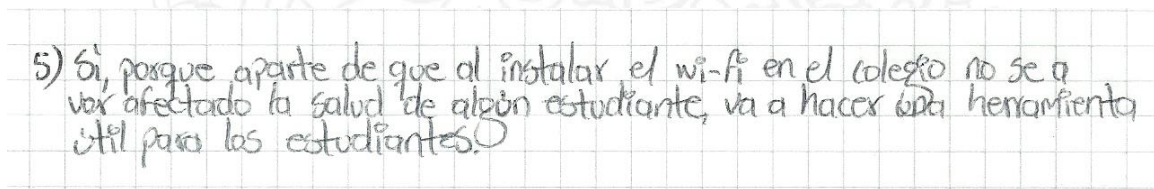 5) Si, porque aparte de que al instalar el wi-fi en el colegio no se a
ver afectado la salud de algún estudiante, va a hacer una herramienta
útil para los estudiantes.